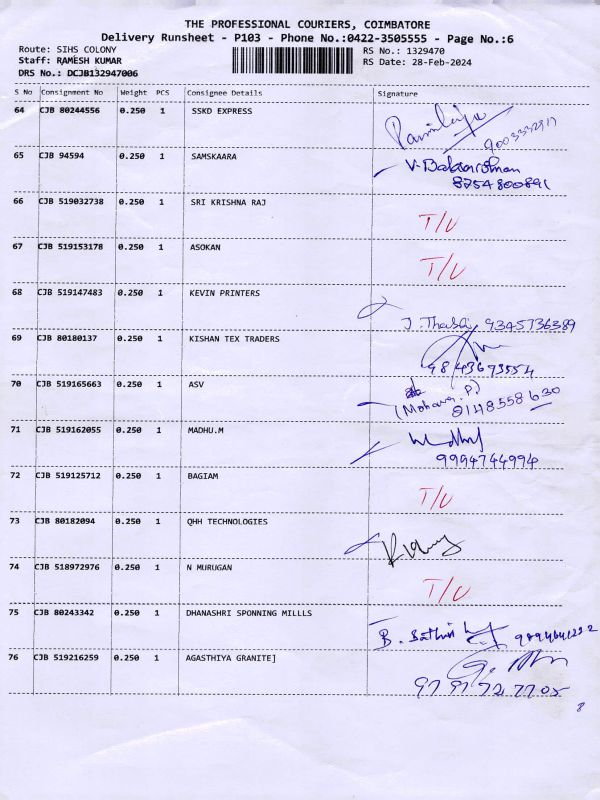 THE PROFESSIONAL COURIERS, COIMBATORE
Delivery Runsheet - P103 - Phone No.:0422-3505555 - Page No.:6
Route: SIHS COLONY RS No.: 1329470
Staff: RAMESH KUMAR RS Date: 28-Feb-2024
DRS No.: DCJB132947006
S No Consignment No Weight PCS Consignee Details Signature
64 CJB 80244556 0.250 1 SSKD EXPRESS
65 CJB 94594 0.250 1 SAMSKAARA
8754800891
66 CJB 519032738 0.250 1 SRI KRISHNA RAJ T/U
67 CJB 519153178 0.250 1 ASOKAN T/U
68 CJB 519147483 0.250 1 KEVIN PRINTERS
9345736389
69 CJB 80180137 0.250 1 KISHAN TEX TRADERS
9843693554
70 CJB 519165663 0.250 1 ASV
8148558630
71 CJB 519162055 0.250 1 MADHU.M
9994744994
72 CJB 519125712 0.250 1 BAGIAM T/U
73 CJB 80182094 0.250 1 QHH TECHNOLOGIES
74 CJB 518972976 0.250 1 N MURUGAN T/U
75 CJB 80243342 0.250 1 DHANASHRI SPONNING MILLLS
76 CJB 519216259 0.250 1 AGASTHIYA GRANITE]
9797727705
8